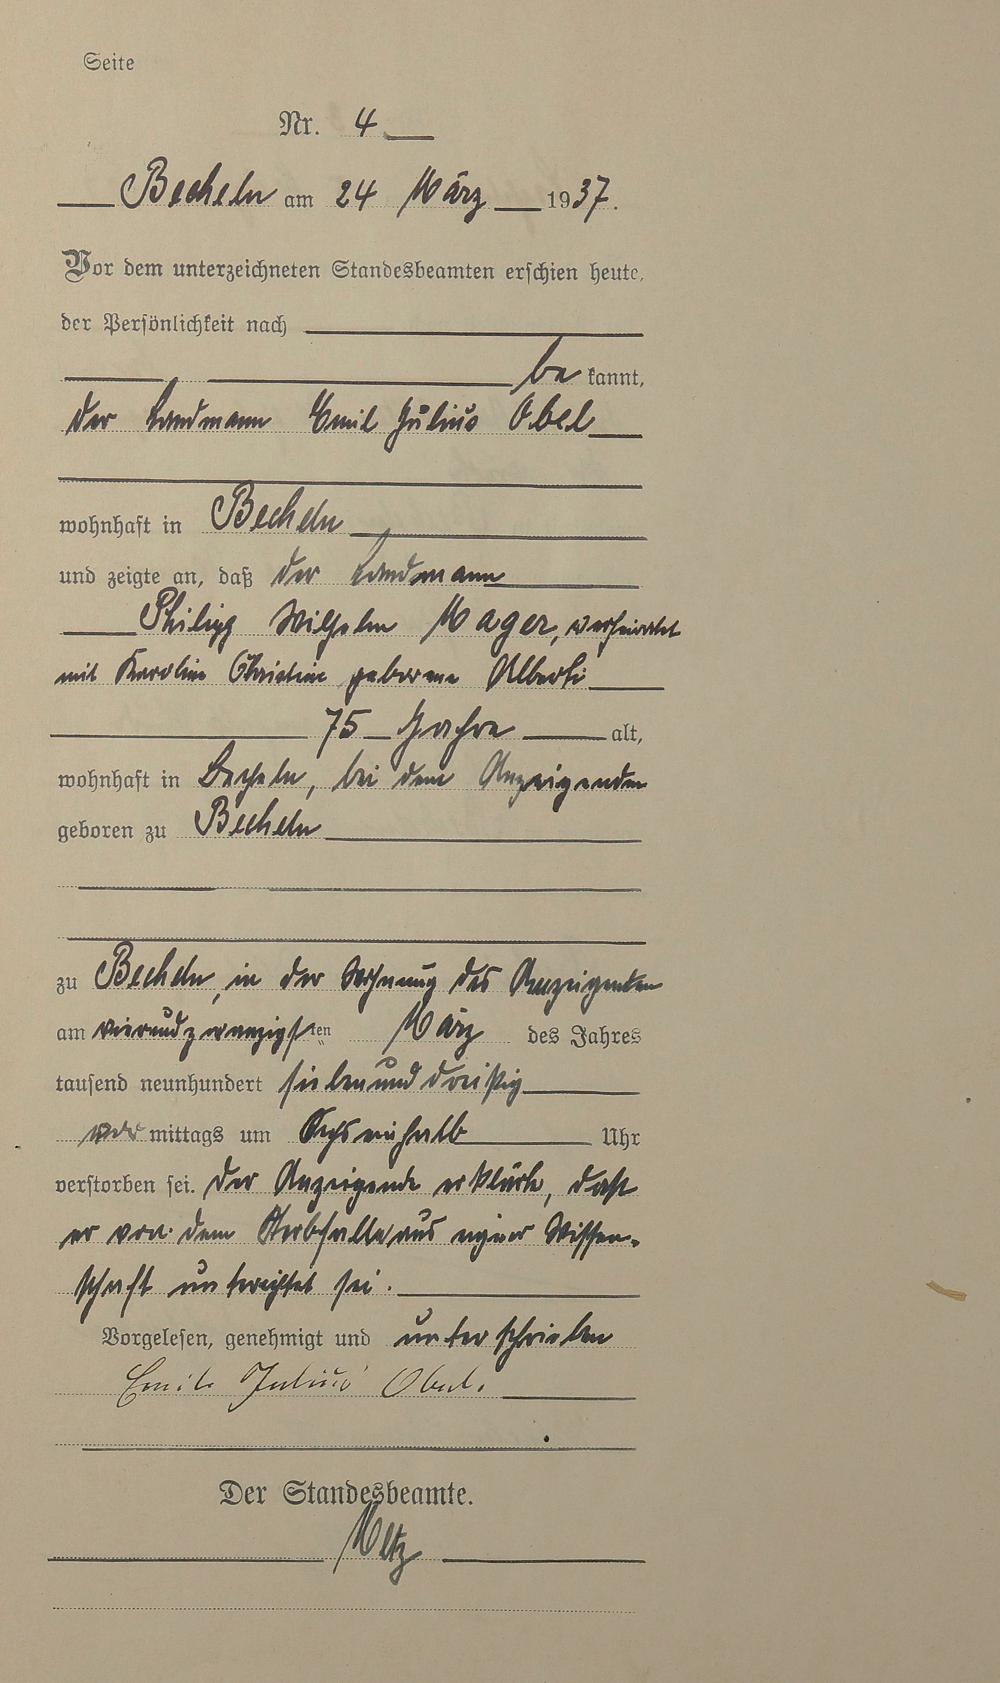 Seite
Nr. 4
Becheln am 24 März 1937.
Vor dem unterzeichneten Standesbeamten erschien heute,
der Persönlichkeit nach
be kannt,
der Landmann Emil Julius Obel
wohnhaft in Becheln
und zeigte an, daß der Landmann
Philipp Wilhelm Mager, verheiratet
mit Karoline Christine geborene Alberti
75 Jahre alt,
wohnhaft in Becheln, bei dem Anzeigenden
geboren zu Becheln
zu Becheln, in der Wohnung des Anzeigenden
am vierundzwanzigsten März des Jahres
tausend neunhundert siebenunddreißig
vor mittags um Uhr
verstorben sei. Der Anzeigende erklärte, daß
er von dem Sterbfalle aus eigner Wissen-
schaft unterrichtet sei.
Vorgelesen, genehmigt und unterschrieben
Emil Julius Obel.
Der Standesbeamte.
Metz